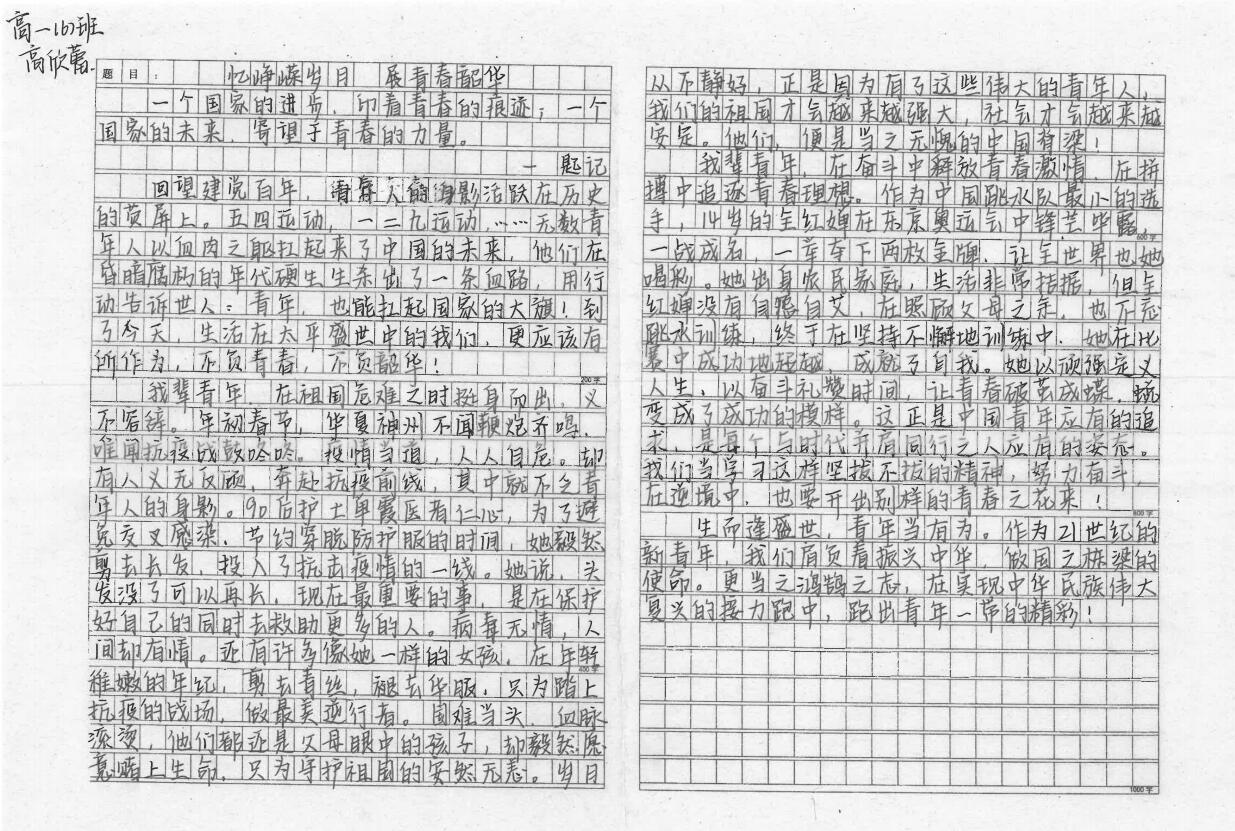 高一(6)班
高欣蕾.
题目: 忆峥嵘岁月 展青春韶华
一个国家的进步,印着青春的痕迹;一个
国家的未来,寄望于青春的力量。
一 题记
回望建党百年,青年人的身影活跃在历史
的荧屏上。五四运动,一二九运动,……无数青
年人以血肉之躯扛起来了中国的未来,他们在
昏暗腐朽的年代硬生生杀出了一条血路,用行
动告诉世人:青年,也能扛起国家的大旗!到
了今天,生活在太平盛世中的我们,更应该有
所作为,不负青春,不负韶华!
200字
我辈青年,在祖国危难之时挺身而出,义
不容辞。年初春节,华夏神州不闻鞭炮齐鸣,
唯闻抗疫战鼓咚咚。疫情当道,人人自危。却
有人义无反顾,奔赴抗疫前线,其中就不乏青
年人的身影。90后护士单霞医者仁心,为了避
免交叉感染,节约穿脱防护服的时间,她毅然
剪去长发,投入了抗击疫情的一线。她说,头
发没了可以再长,现在最重要的事,是在保护
好自己的同时去救助更多的人。病毒无情,人
间却有情。还有许多像她一样的女孩,在年轻
400字
稚嫩的年纪,剪去青丝,褪去华服,只为踏上
抗疫的战场,做最美逆行者。国难当头,血脉
滚烫,他们都还是父母眼中的孩子,却毅然愿
意赌上生命,只为守护祖国的安然无恙。岁月
从不静好,正是因为有了这些伟大的青年人,
我们的祖国才会越来越强大,社会才会越来越
安定。他们,便是当之无愧的中国脊梁!
我辈青年,在奋斗中释放青春激情,在拼
搏中追逐青春理想。作为中国跳水队最小的选
手,14岁的全红婵在东京奥运会中锋芒毕露,
600字
一战成名,一举夺下两枚金牌,让全世界为她
喝彩。她出身农民家庭,生活非常拮据,但全
红婵没有自怨自艾,在照顾父母之余,也不忘
跳水训练,终于在坚持不懈地训练中,她在比
赛中成功地超越,成就了自我。她以顽强定义
人生,以奋斗礼赞时间,让青春破茧成蝶,蜕
变成了成功的模样。这正是中国青年应有的追
求,是每个与时代并肩同行之人应有的姿态。
我们当学习这样坚拔不拔的精神,努力奋斗,
在逆境中,也要开出别样的青春之花来!
800字
生而逢盛世,青年当有为。作为21世纪的
新青年,我们肩负着振兴中华,做国之栋梁的
使命。更当立鸿鹄之志,在实现中华民族伟大
复兴的接力跑中,跑出青年一带的精彩!
1000字